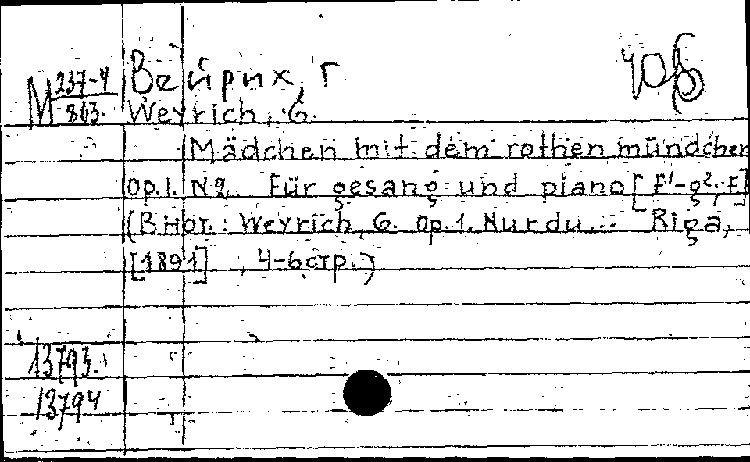 Вейрих, Г
М 237-4
863.
Weyrich, G.
Mädchen mit dem rothen mündchen
op.1. N2. Für gesang und piano [E¹-g²; F]
(В нот.: Weyrich, G. op.1. Nur du... Riga,
[1891] , 4-6 стр.)
13793.
13794